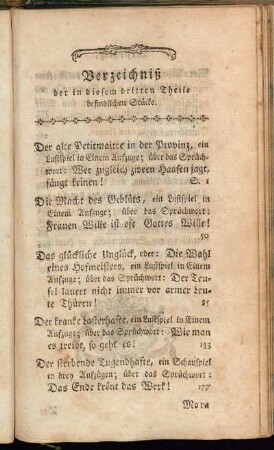 Verzeichniß
der in diesem dritten Theile
befindlichen Stücke.
Der alte Petitmaitre in der Provinz, ein
Lustspiel in Einem Aufzuge; über das Sprüch-
wort: Wer zugleich zween Haasen jagt,
fängt keinen! S. 1
Die Macht des Geblüts, ein Lustspiel in
Einem Aufzuge; über das Sprüchwort:
Frauen Wille ist oft Gottes Wille!
50
Das glückliche Unglück, oder: Die Wahl
eines Hofmeisters, ein Lustspiel in Einem
Aufzuge; über das Sprüchwort: Der Teu-
fel lauert nicht immer vor armer Leu-
te Thüren! 85
Der kranke Lasterhafte, ein Lustspiel in Einem
Aufzuge; über das Sprüchwort: Wie man
es treibt, so geht es! 133
Der sterbende Tugendhafte, ein Schauspiel
in drey Aufzügen; über das Sprüchwort:
Das Ende krönt das Werk! 177
Mora